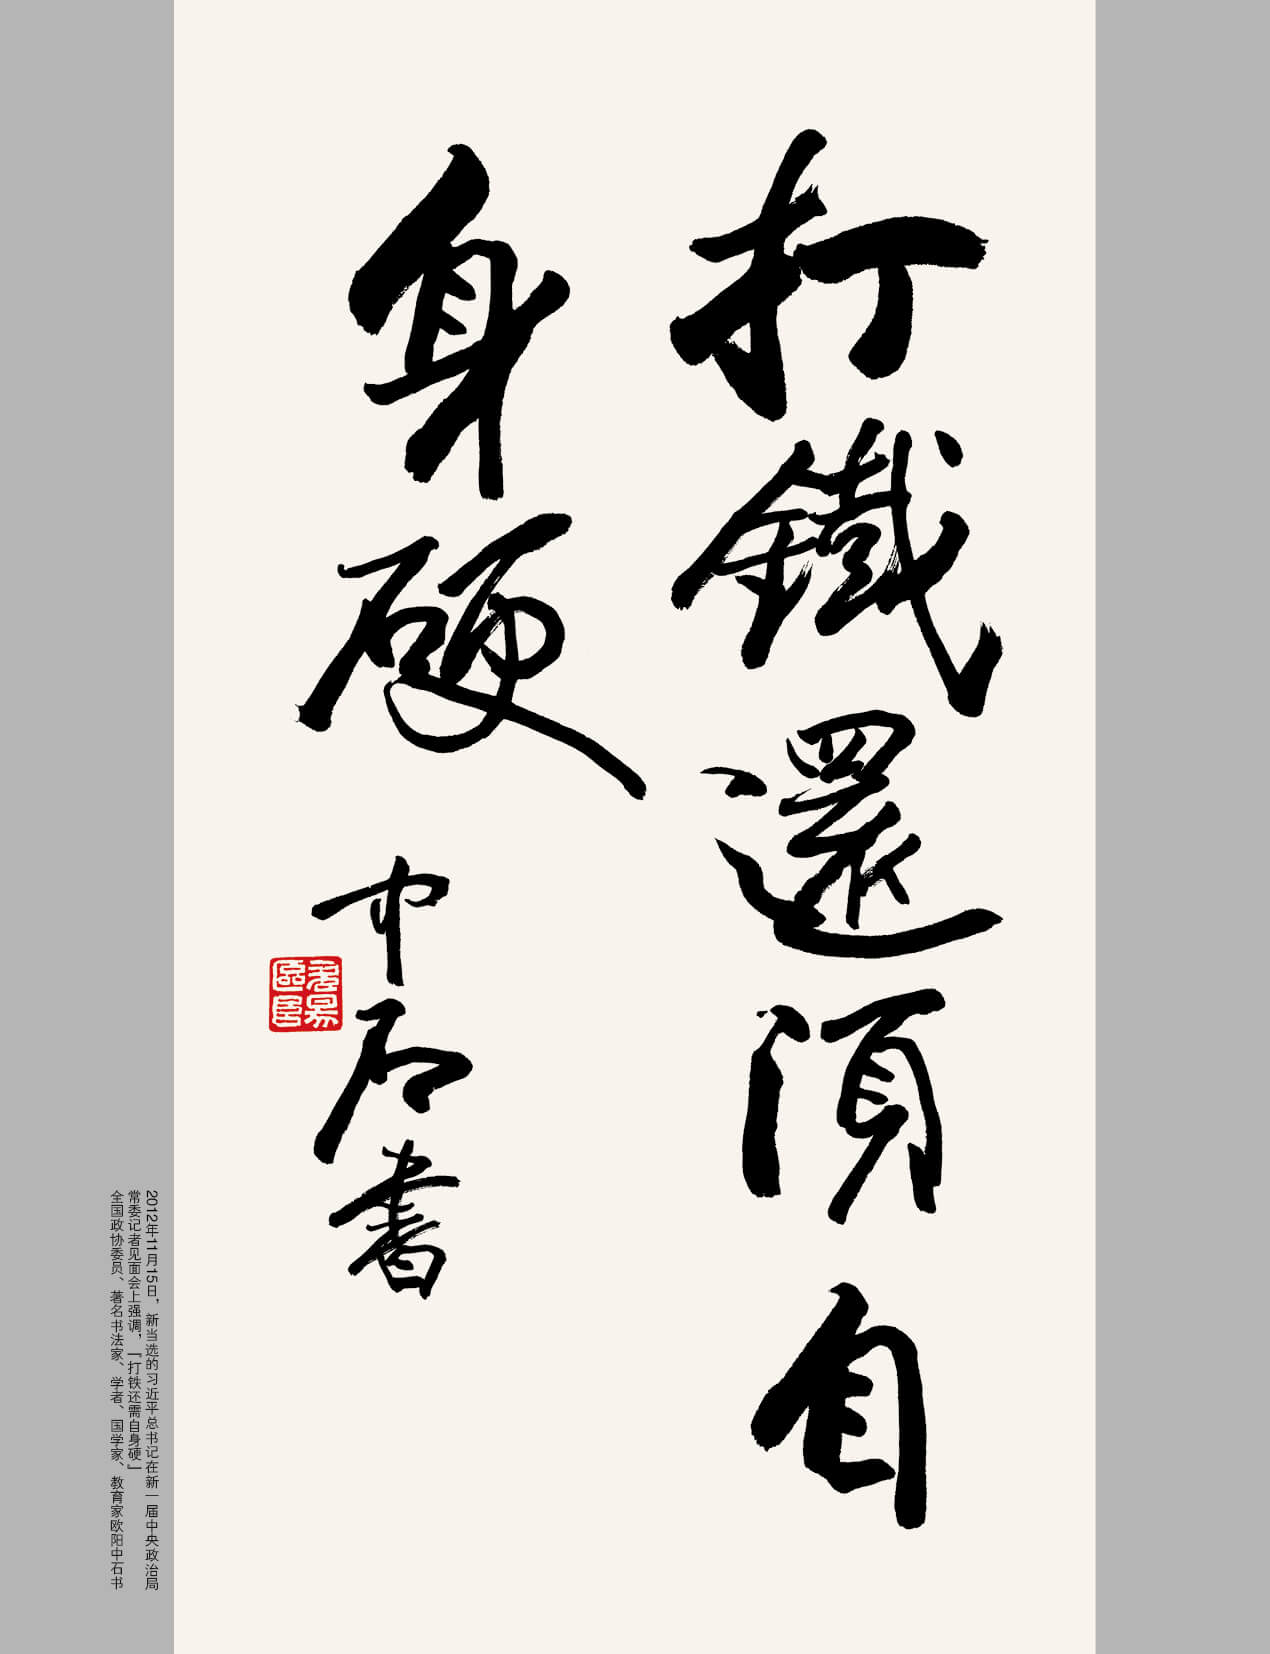 打鐵還須自
身硬
中石書
2012年11月15日，新当选的习近平总书记在新一届中央政治局
常委记者见面会上强调，「打铁还需自身硬」
全国政协委员、著名书法家、学者、国学家、教育家欧阳中石书